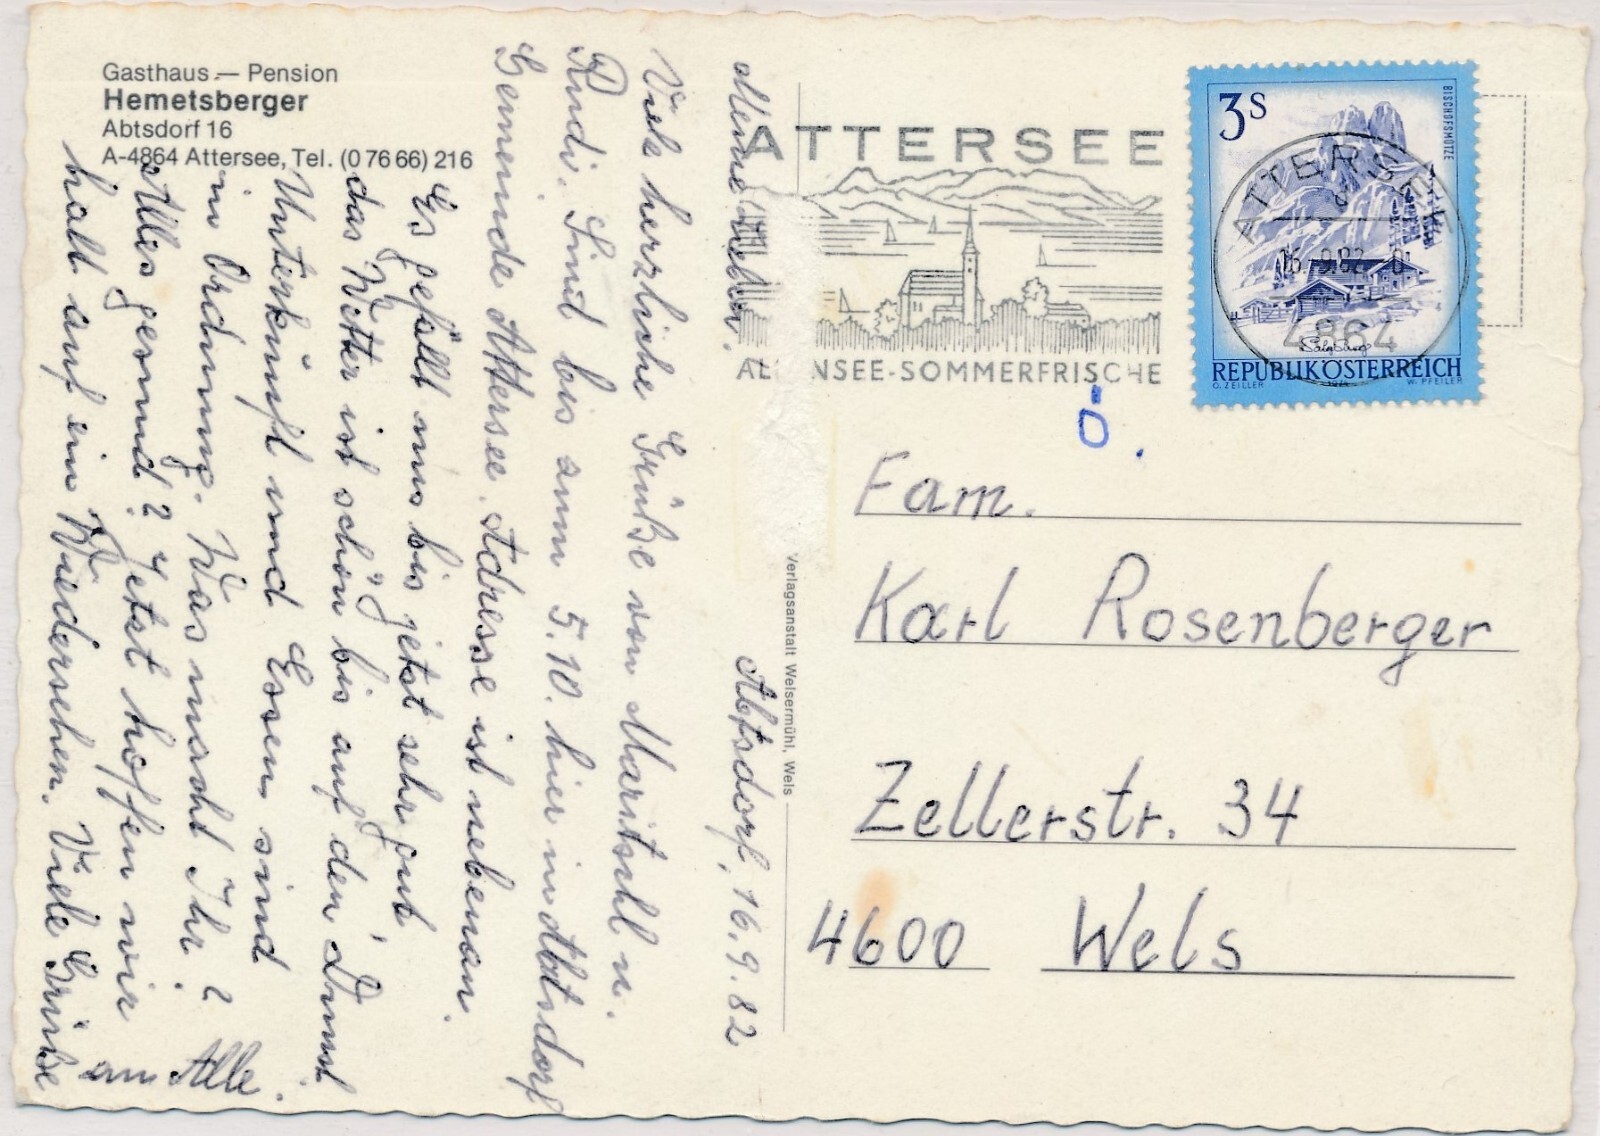 Gasthaus — Pension
Hemetsberger
Abtsdorf 16
A-4864 Attersee, Tel. (0 76 66) 216
Abtsdorf, 16.9.82
Meine Lieben.
Viele herzliche Grüße von Maritschl u.
Rudi. Sind bis zum 5.10. hier in Abtsdorf
Gemeinde Attersee. Adresse ist nebenan.
Es gefällt uns bis jetzt sehr gut,
das Wetter ist schön bis auf den Dunst.
Unterkunft und Essen sind
in Ordnung. Was macht Ihr?
Alles gesund? Jetzt hoffen wir
halt auf ein Wiedersehen. Viele Grüße
an Alle.
Verlagsanstalt Welsermühl, Wels
ATTERSEE
ALPENSEE-SOMMERFRISCHE
3S
BISCHOFSMÜTZE
Salzburg
REPUBLIK ÖSTERREICH
O. ZEILLER W. PFEILER
ATTERSEE
16.-9.82
4864
Ö.
Fam.
Karl Rosenberger
Zellerstr. 34
4600 Wels